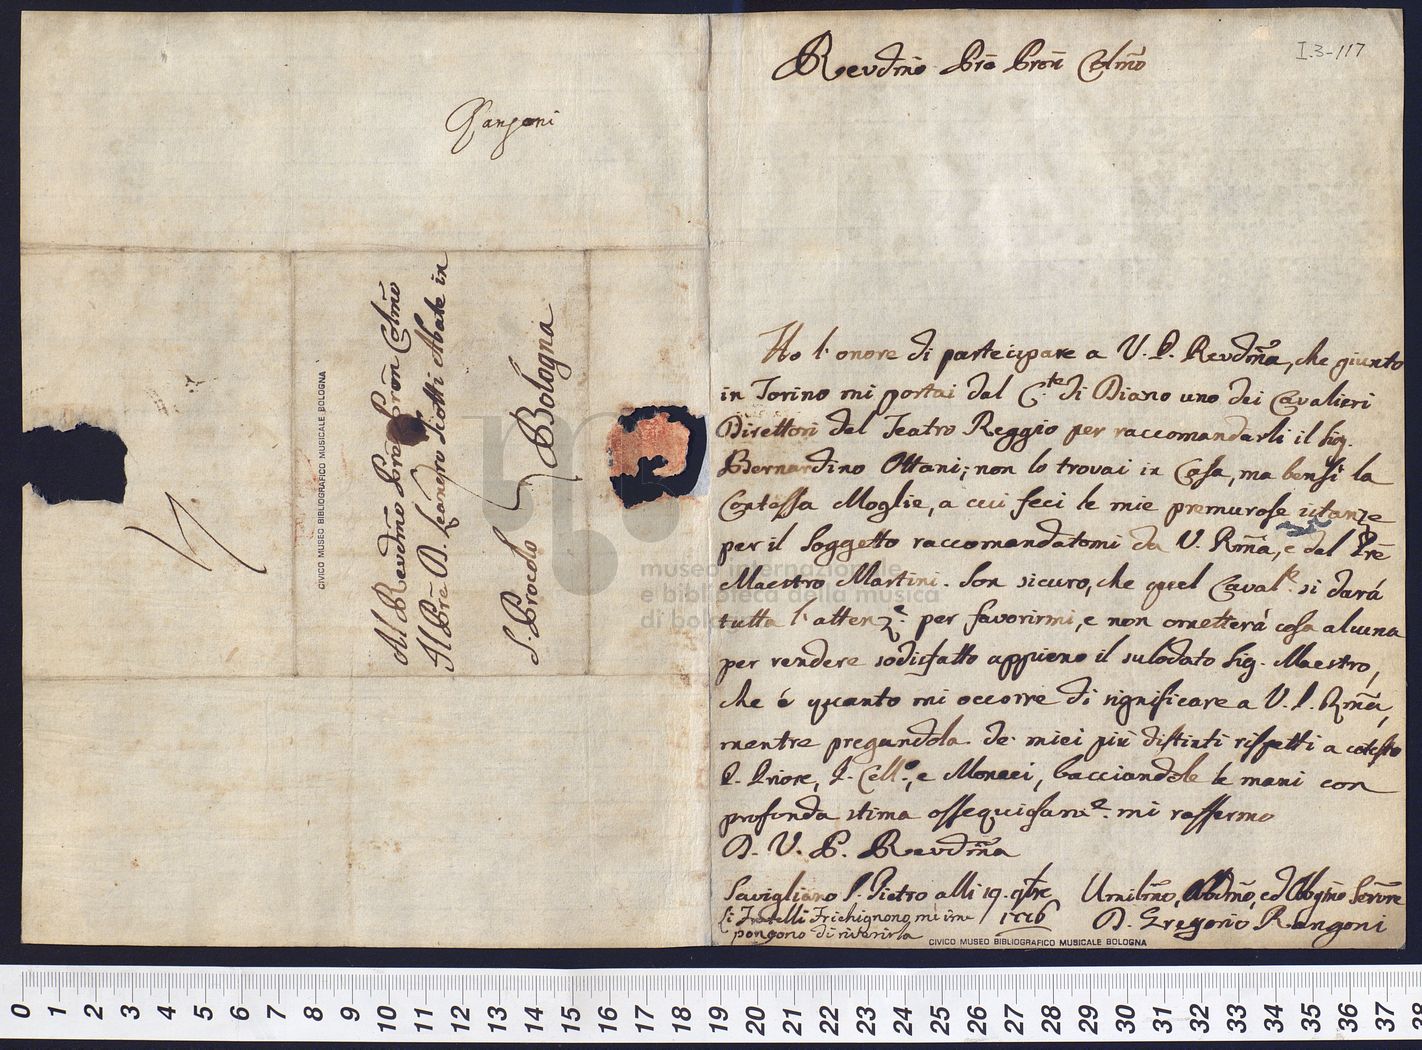 Rangoni
Al Revdmo Pre Pron Colmo
Il Pre D. Leandro Siotti Abate in
S. Procolo
Bologna
CIVICO MUSEO BIBLIOGRAFICO MUSICALE BOLOGNA
I.3-117
Revdmo Pre Pron Colmo
Ho l'onore di partecipare a V. P. Revdma, che giunto
in Torino mi portai dal C.te di Diano uno dei Cavalieri
Direttori del Teatro Reggio per raccomandarli il Sig.
Bernardino Ottani; non lo trovai in Casa, ma bensì la
Contessa Moglie, a cui feci le mie premurose istanze
per il Soggetto raccomandatomi da V. P. Rma, e dal Pre
Maestro Martini. Son sicuro, che quel Caval.e si darà
tutta l'attenz.e per favorirmi, e non ometterà cosa alcuna
per rendere sodisfatto appieno il sulodato Sig. Maestro,
che è quanto mi occorre di significare a V. P. Rma,
mentre pregandola de' miei più distinti rispetti a cotesto
P. Priore, P. Cell.o, e Monaci, bacciandole le mani con
profonda stima ossequiosam.e mi raffermo
D. V. P. Revdma
Savigliano S. Pietro alli 19. 9bre 1776
Li Fratelli Frichignono mi im
pongono di riverirla
Umilmo, Obbdmo, ed Obbgmo Servre
D. Gregorio Rangoni
CIVICO MUSEO BIBLIOGRAFICO MUSICALE BOLOGNA
museo internazionale
e biblioteca della musica
di bologna
0 1 2 3 4 5 6 7 8 9 10 11 12 13 14 15 16 17 18 19 20 21 22 23 24 25 26 27 28 29 30 31 32 33 34 35 36 37 38